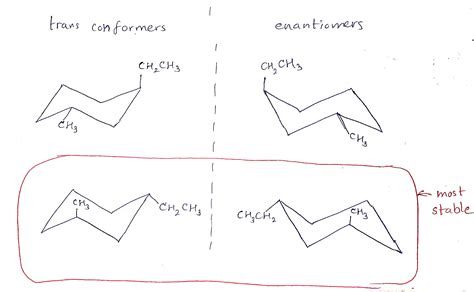 trans conformers
enantiomers
CH2CH3
CH2CH3
CH3
CH3
CH3
CH2CH3
CH3CH2
CH3
most
stable